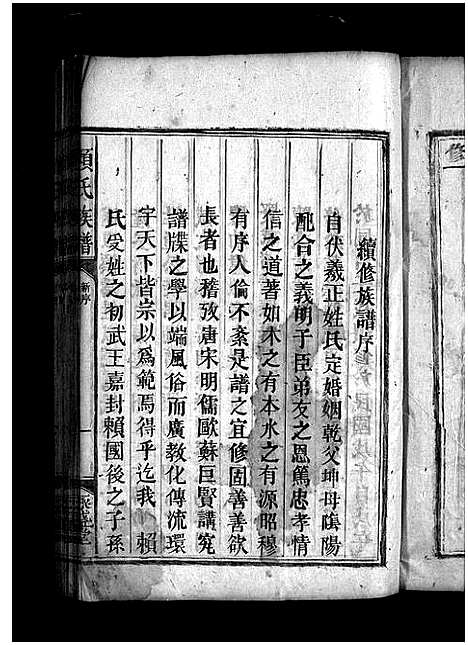 續修族譜序
自伏羲正姓氏定婚姻乾父坤母陰陽
配合之義明于臣弟友之恩篤忠孝情
信之道著如木之有本水之有源昭穆
有序人倫不紊是譜之宜修固善善欲
長者也稽攷唐宋明儒歐蘇巨賢講究
譜牒之學以端風俗而廣教化傳流環
宇天下皆宗以為範焉得乎迄我 賴
氏受姓之初武王嘉封賴國後之子孫
賴氏族譜
新序
一
修